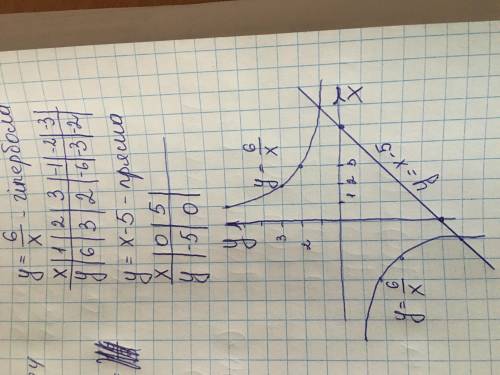 y = 6/x - гіпербола
x | 1 | 2 | 3 | -1 | -2 | -3 |
y | 6 | 3 | 2 | -6 | -3 | -2 |
y = x-5 - пряма
x | 0 | 5 |
y | -5 | 0 |
y
y = 6/x
3
2
1 2 3
x
y = x-5
y = 6/x